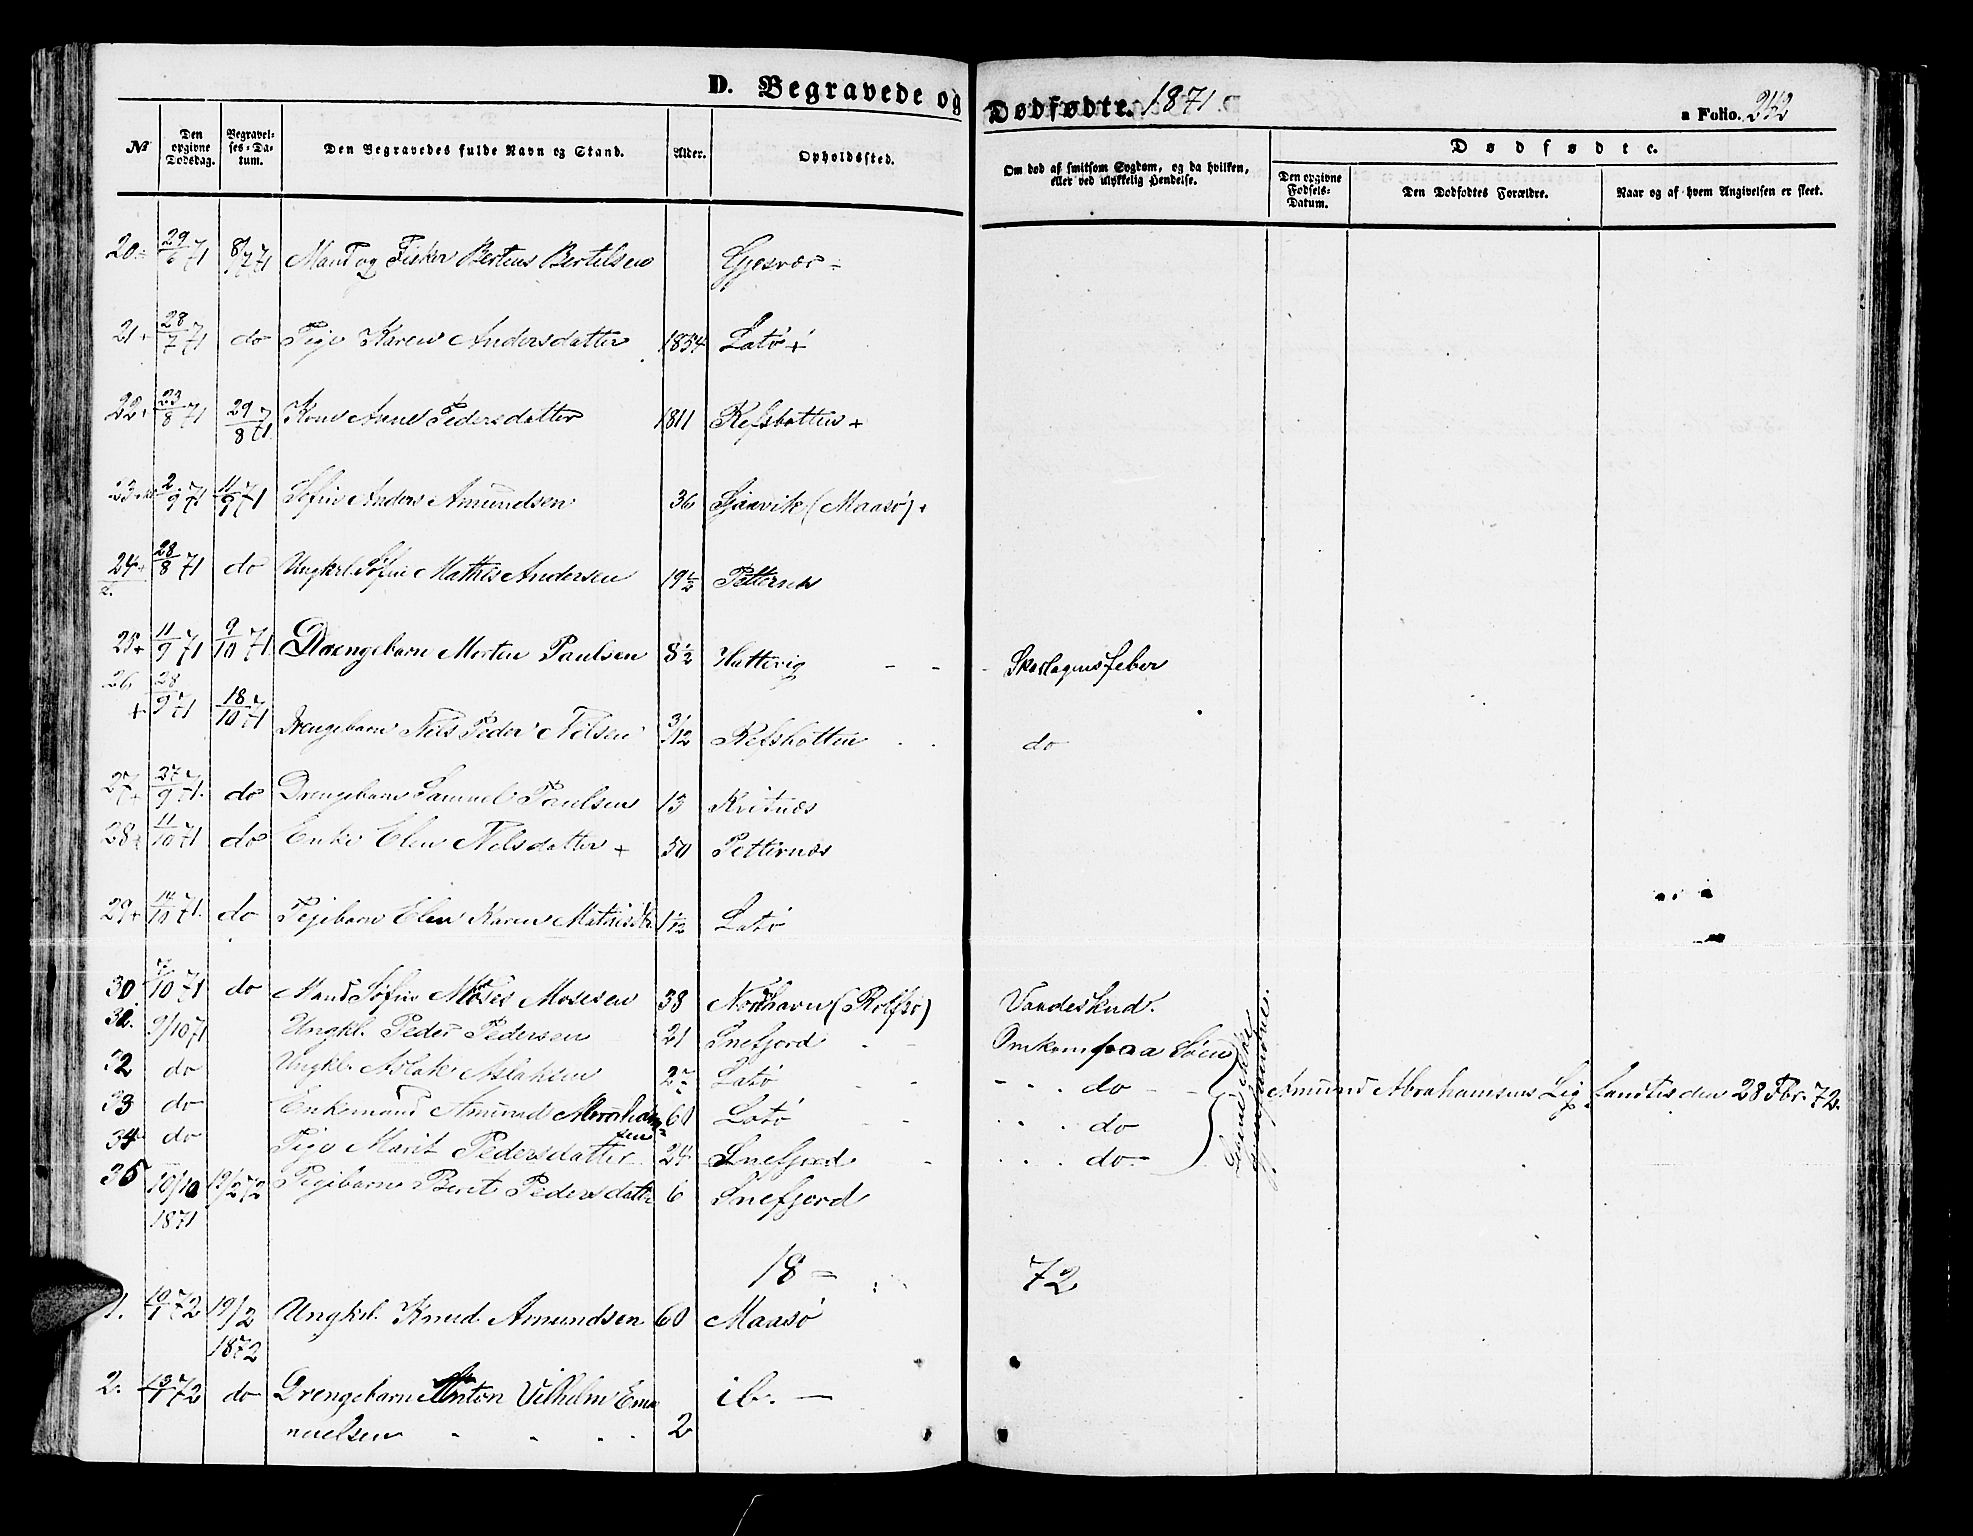 D. Begravede og Dødfødte. 1871. a Folio. 242
№ Den opgivne Dødsdag. Begravelses-Datum. Den Begravedes fulde Navn og Stand. Alder. Opholdssted. Om død af smitsom Sygdom, og da hvilken, eller ved ulykkelig Hendelse. Dødfødte. Den opgivne Fødsels-Datum. Den Dødfødtes Forældre. Naar og af hvem Angivelsen er skeet.
20 29/6 71 8/7 71 Mand og Fisker Bertens Bertelsen Gjesvær
21+ 28/7 71 do Pige Karen Andersdatter 1854 Latø +
22+ 23/8 71 29/8 71 Kone Anne Pedersdatter 1811 Refsbotten +
23 2/9 71 11/9 71 Søfin Anders Amundsen 36 (Maasø) +
24+ 28/8 71 do Ungkrl. Søfin Mathis Andersen 19 1/2 Petternæs
25+ 11/9 71 9/10 71 Drengebarn Morten Paulsen 8 1/2 Hattevig - - - Skarlagensfeber
26+ 28/9 71 18/10 71 Drengebarn Nils Peder Nilsen 3/12 Refsbotten . . do
27+ 27/9 71. do Drengebarn Samuel Paulsen 13 Kvitnæs
28+ 11/10 71 do Enke Elen Nilsdatter + 50 Petternæs
29+ 14/10 71. do Pigebarn Elen Karen Mathisdtr. 1 1/12 Latø
30. 7/10 71 do Mand Søfin Moses Mosesen 38 Nordhavn (Rolfsø) Vaadeskud.
31. 9/10 71 Ungkl. Peder Pedersen 21 Snefjord . - Omkom paa Søen
32 do Ungkl. Aslak Aslaksen 27 Latø - - - - . do - Amund Abrahamsens Lig fandtes den 28 Fbr. 72.
33 do Enkemand Amund Abrahamsen 60 Latø . . . do
34 do Pige Marit Pedersdatter 24 Snefjord - . . . do
ikke gjenfundne.
35 10/10 1871 19/2 72 Pigebarn Beret Pedersdatter 6 Snefjord
18 72
1. 10/1 72 19/2 1872 Ungkrl. Knud Amundsen 60 Maasø
2. 13/1 72 do Drengebarn Anton Vilhelm Ema
nuelsen " " " " 2 ib. —